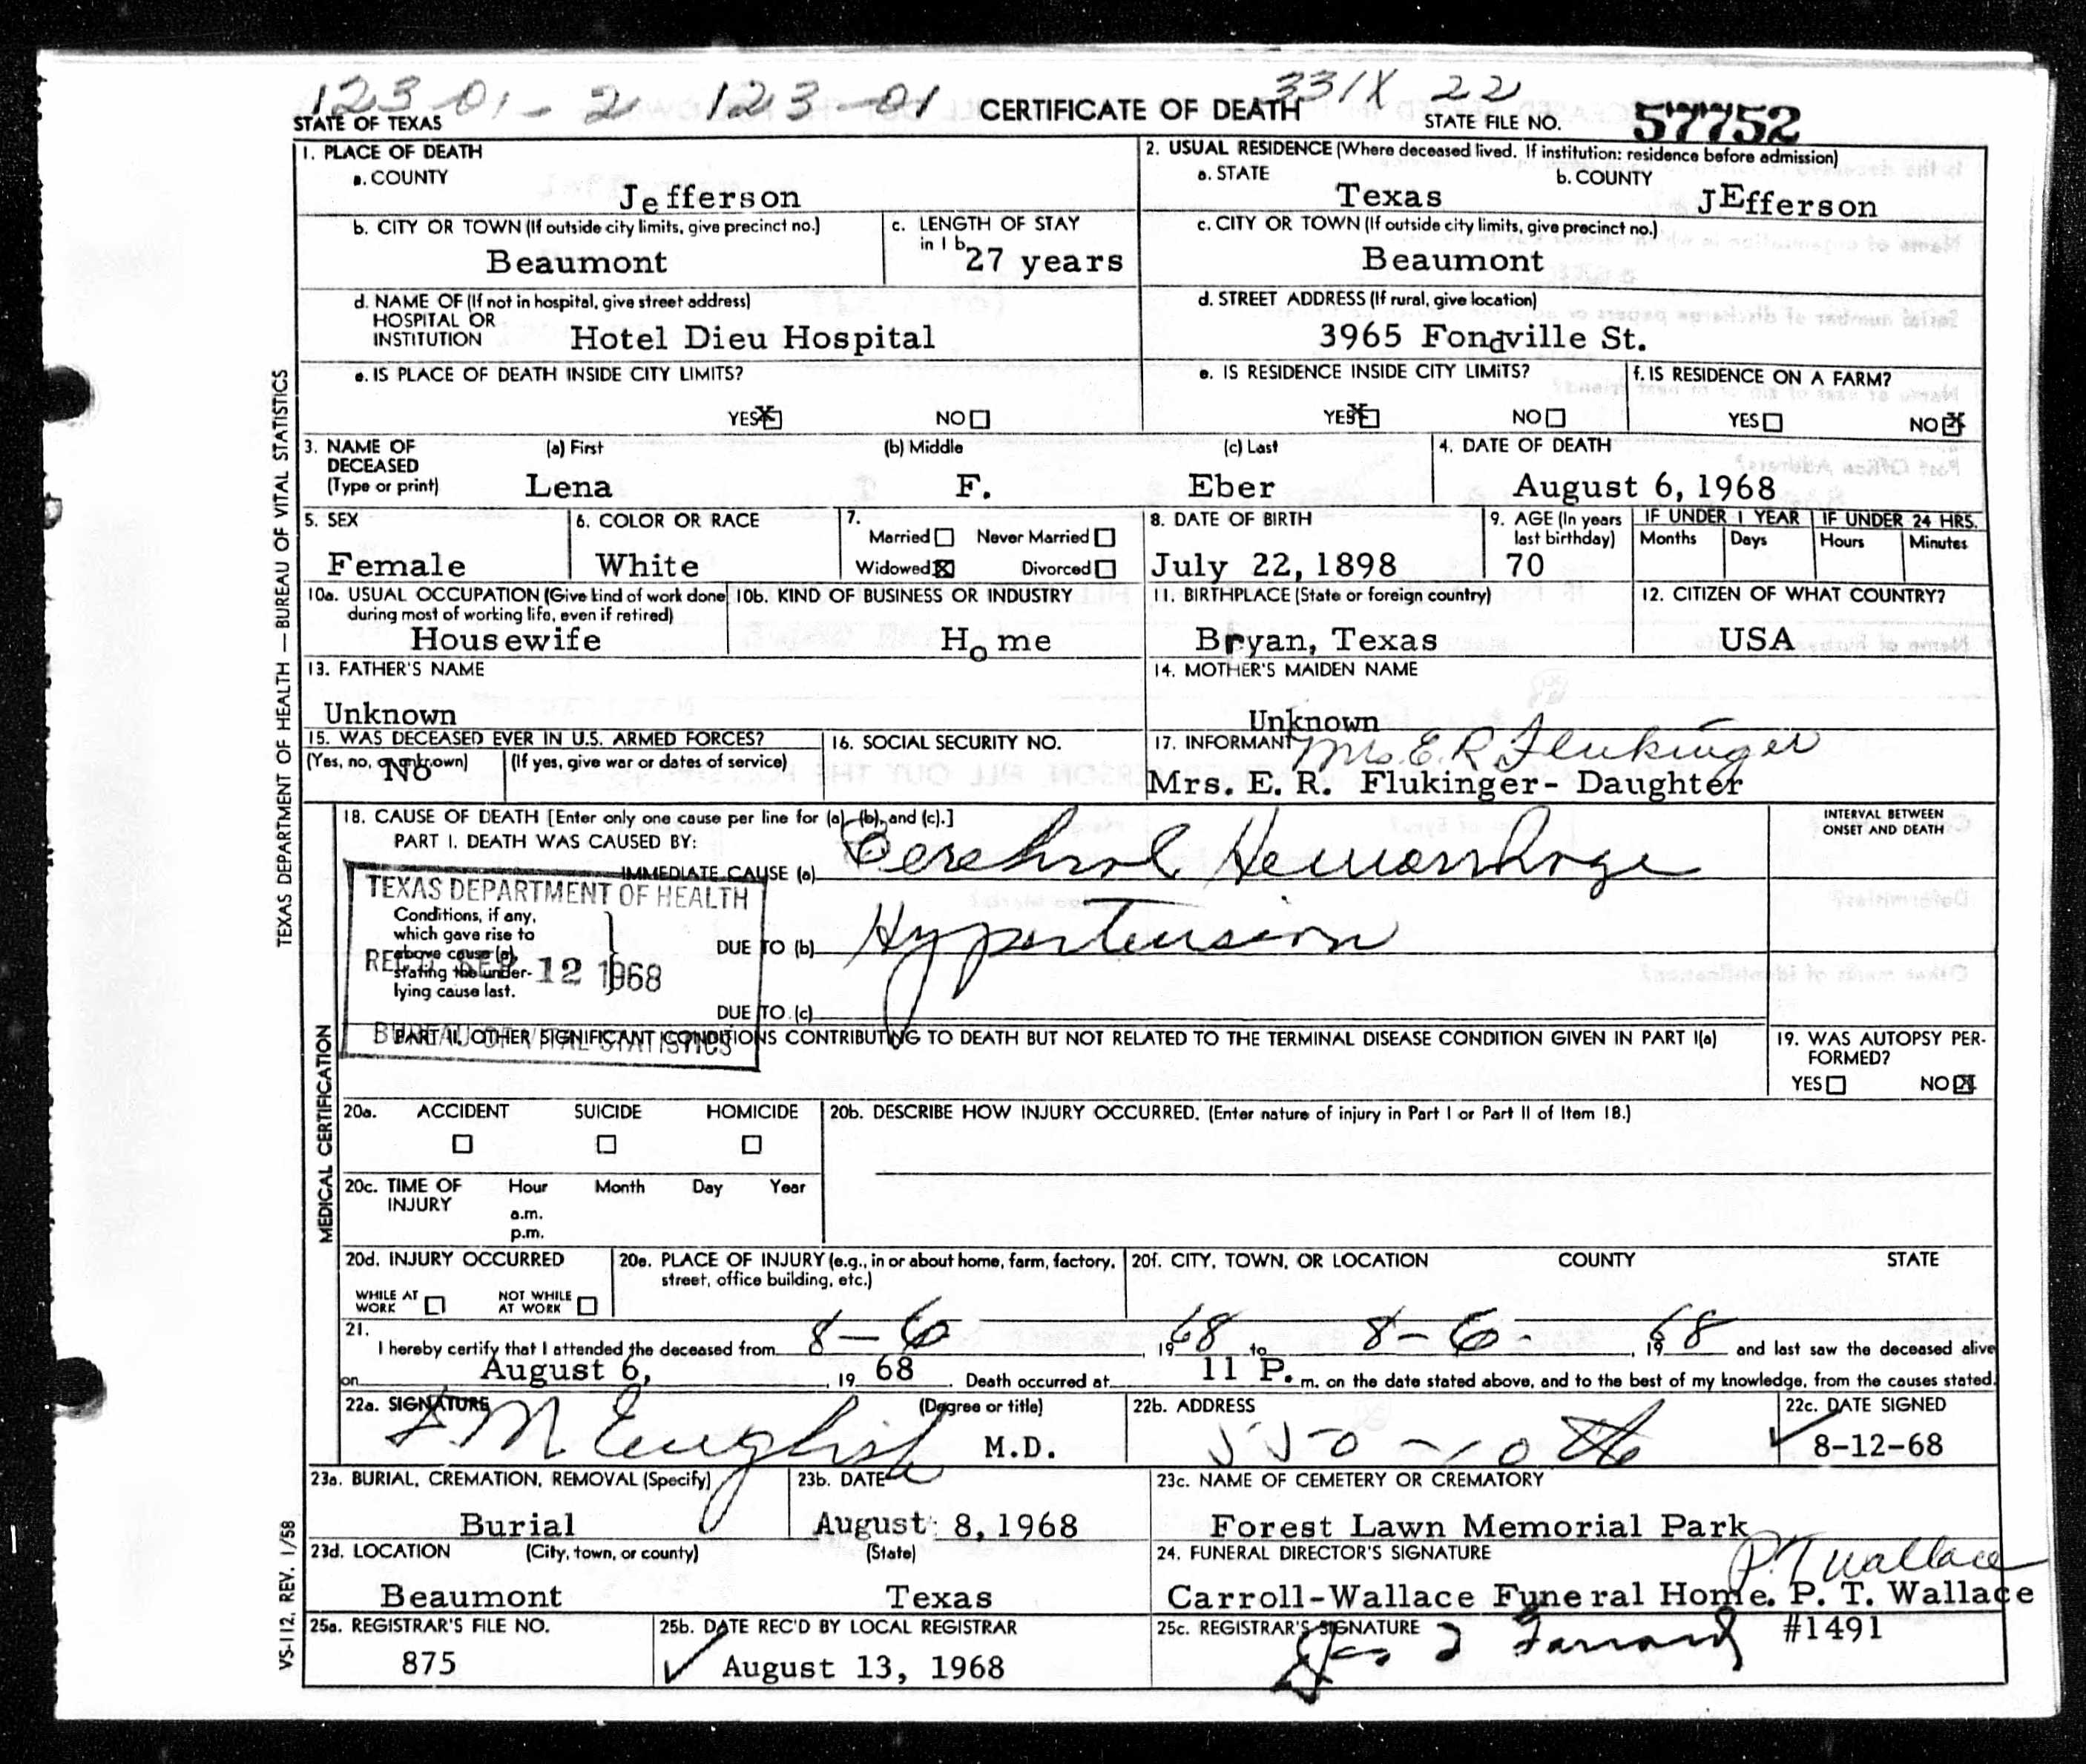 123-01-2 123-01 CERTIFICATE OF DEATH 331X 22
STATE OF TEXAS STATE FILE NO. 57752
1. PLACE OF DEATH
a. COUNTY
Jefferson
2. USUAL RESIDENCE (Where deceased lived. If institution: residence before admission)
a. STATE b. COUNTY
Texas JEfferson
b. CITY OR TOWN (If outside city limits, give precinct no.)
Beaumont
c. LENGTH OF STAY
in 1 b
27 years
c. CITY OR TOWN (If outside city limits, give precinct no.)
Beaumont
d. NAME OF (If not in hospital, give street address)
HOSPITAL OR
INSTITUTION Hotel Dieu Hospital
d. STREET ADDRESS (If rural, give location)
3965 Fondville St.
e. IS PLACE OF DEATH INSIDE CITY LIMITS?
YES NO
e. IS RESIDENCE INSIDE CITY LIMITS?
YES NO
f. IS RESIDENCE ON A FARM?
YES NO
3. NAME OF (a) First (b) Middle (c) Last
DECEASED
(Type or print) Lena F. Eber
4. DATE OF DEATH
August 6, 1968
5. SEX
Female
6. COLOR OR RACE
White
7.
Married Never Married
Widowed Divorced
8. DATE OF BIRTH
July 22, 1898
9. AGE (In years
last birthday)
70
IF UNDER 1 YEAR IF UNDER 24 HRS.
Months Days Hours Minutes
10a. USUAL OCCUPATION (Give kind of work done
during most of working life, even if retired)
Housewife
10b. KIND OF BUSINESS OR INDUSTRY
Home
11. BIRTHPLACE (State or foreign country)
Bryan, Texas
12. CITIZEN OF WHAT COUNTRY?
USA
13. FATHER'S NAME
Unknown
14. MOTHER'S MAIDEN NAME
Unknown
15. WAS DECEASED EVER IN U.S. ARMED FORCES?
(Yes, no, or unknown) (If yes, give war or dates of service)
No
16. SOCIAL SECURITY NO.
17. INFORMANT Mrs. E. R. Flukinger
Mrs. E. R. Flukinger- Daughter
18. CAUSE OF DEATH [Enter only one cause per line for (a), (b), and (c).]
PART I. DEATH WAS CAUSED BY:
IMMEDIATE CAUSE (a) Cerebral Hemorrhage
INTERVAL BETWEEN
ONSET AND DEATH
TEXAS DEPARTMENT OF HEALTH
Conditions, if any,
which gave rise to
above cause (a),
stating the under-
lying cause last.
REC'D SEP 12 1968
BUREAU OF VITAL STATISTICS
DUE TO (b) Hypertension
DUE TO (c)
PART II. OTHER SIGNIFICANT CONDITIONS CONTRIBUTING TO DEATH BUT NOT RELATED TO THE TERMINAL DISEASE CONDITION GIVEN IN PART I(a)
19. WAS AUTOPSY PER-
FORMED?
YES NO
20a. ACCIDENT SUICIDE HOMICIDE
20b. DESCRIBE HOW INJURY OCCURRED. (Enter nature of injury in Part I or Part II of Item 18.)
20c. TIME OF Hour Month Day Year
INJURY
a.m.
p.m.
20d. INJURY OCCURRED
WHILE AT
WORK
NOT WHILE
AT WORK
20e. PLACE OF INJURY (e.g., in or about home, farm, factory,
street, office building, etc.)
20f. CITY, TOWN, OR LOCATION COUNTY STATE
21.
I hereby certify that I attended the deceased from 8-6, 1968 to 8-6-, 1968 and last saw the deceased alive
on August 6, , 19 68 . Death occurred at 11 P. m. on the date stated above, and to the best of my knowledge, from the causes stated.
22a. SIGNATURE (Degree or title)
English M.D.
22b. ADDRESS
22c. DATE SIGNED
8-12-68
23a. BURIAL, CREMATION, REMOVAL (Specify)
Burial
23b. DATE
August 8, 1968
23c. NAME OF CEMETERY OR CREMATORY
Forest Lawn Memorial Park
23d. LOCATION (City, town, or county) (State)
Beaumont Texas
24. FUNERAL DIRECTOR'S SIGNATURE P. T. Wallace
Carroll-Wallace Funeral Home. P. T. Wallace
#1491
25a. REGISTRAR'S FILE NO.
875
25b. DATE REC'D BY LOCAL REGISTRAR
August 13, 1968
25c. REGISTRAR'S SIGNATURE
TEXAS DEPARTMENT OF HEALTH — BUREAU OF VITAL STATISTICS
MEDICAL CERTIFICATION
VS-112. REV. 1/58